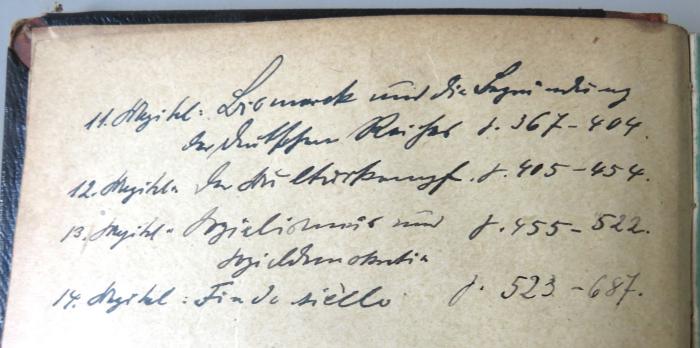 11. Kapitel: Bismarck und die Begründung
des Deutschen Reiches S. 367-404.
12. Kapitel: Der Kulturkampf. S. 405-454.
13. Kapitel: Sozialismus und S. 455-522.
Sozialdemokratie
14. Kapitel: Fin de siècle S. 523-687.